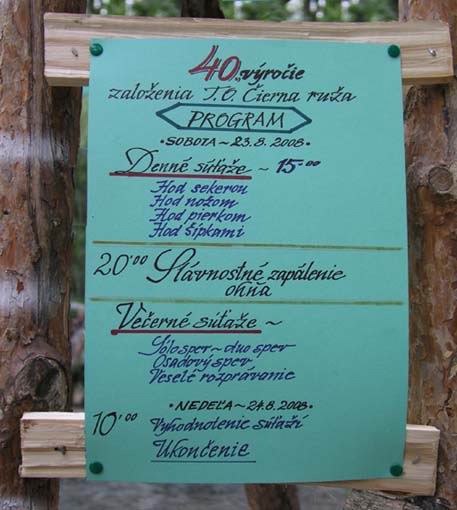 40. výročie
založenia T.O. Čierna ruža
PROGRAM
•SOBOTA~23.8.2008•
Denné súťaže ~ 15·⁰⁰
Hod sekerou
Hod nožom
Hod pierkom
Hod šípkami
20·⁰⁰ Slávnostné zapálenie
ohňa
Večerné súťaže ~
Sólospev~duo spev
Osadový spev
Veselé rozprávanie
•NEDEĽA~24.8.2008•
10·⁰⁰ Vyhodnotenie súťaží
Ukončenie